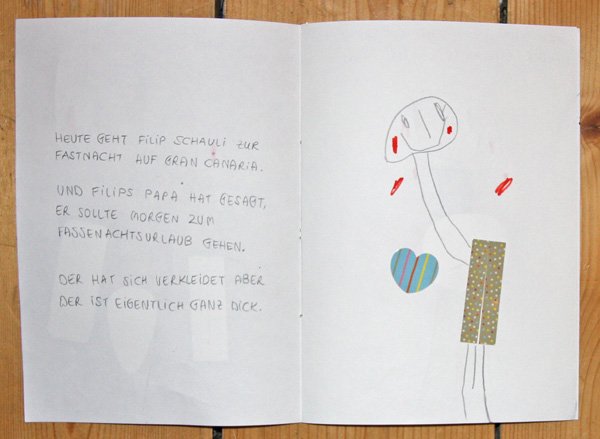 HEUTE GEHT FILIP SCHAULI ZUR
FASTNACHT AUF GRAN CANARIA.
UND FILIPS PAPA HAT GESAGT,
ER SOLLTE MORGEN ZUM
FASSENACHTSURLAUB GEHEN.
DER HAT SICH VERKLEIDET ABER
DER IST EIGENTLICH GANZ DICK.